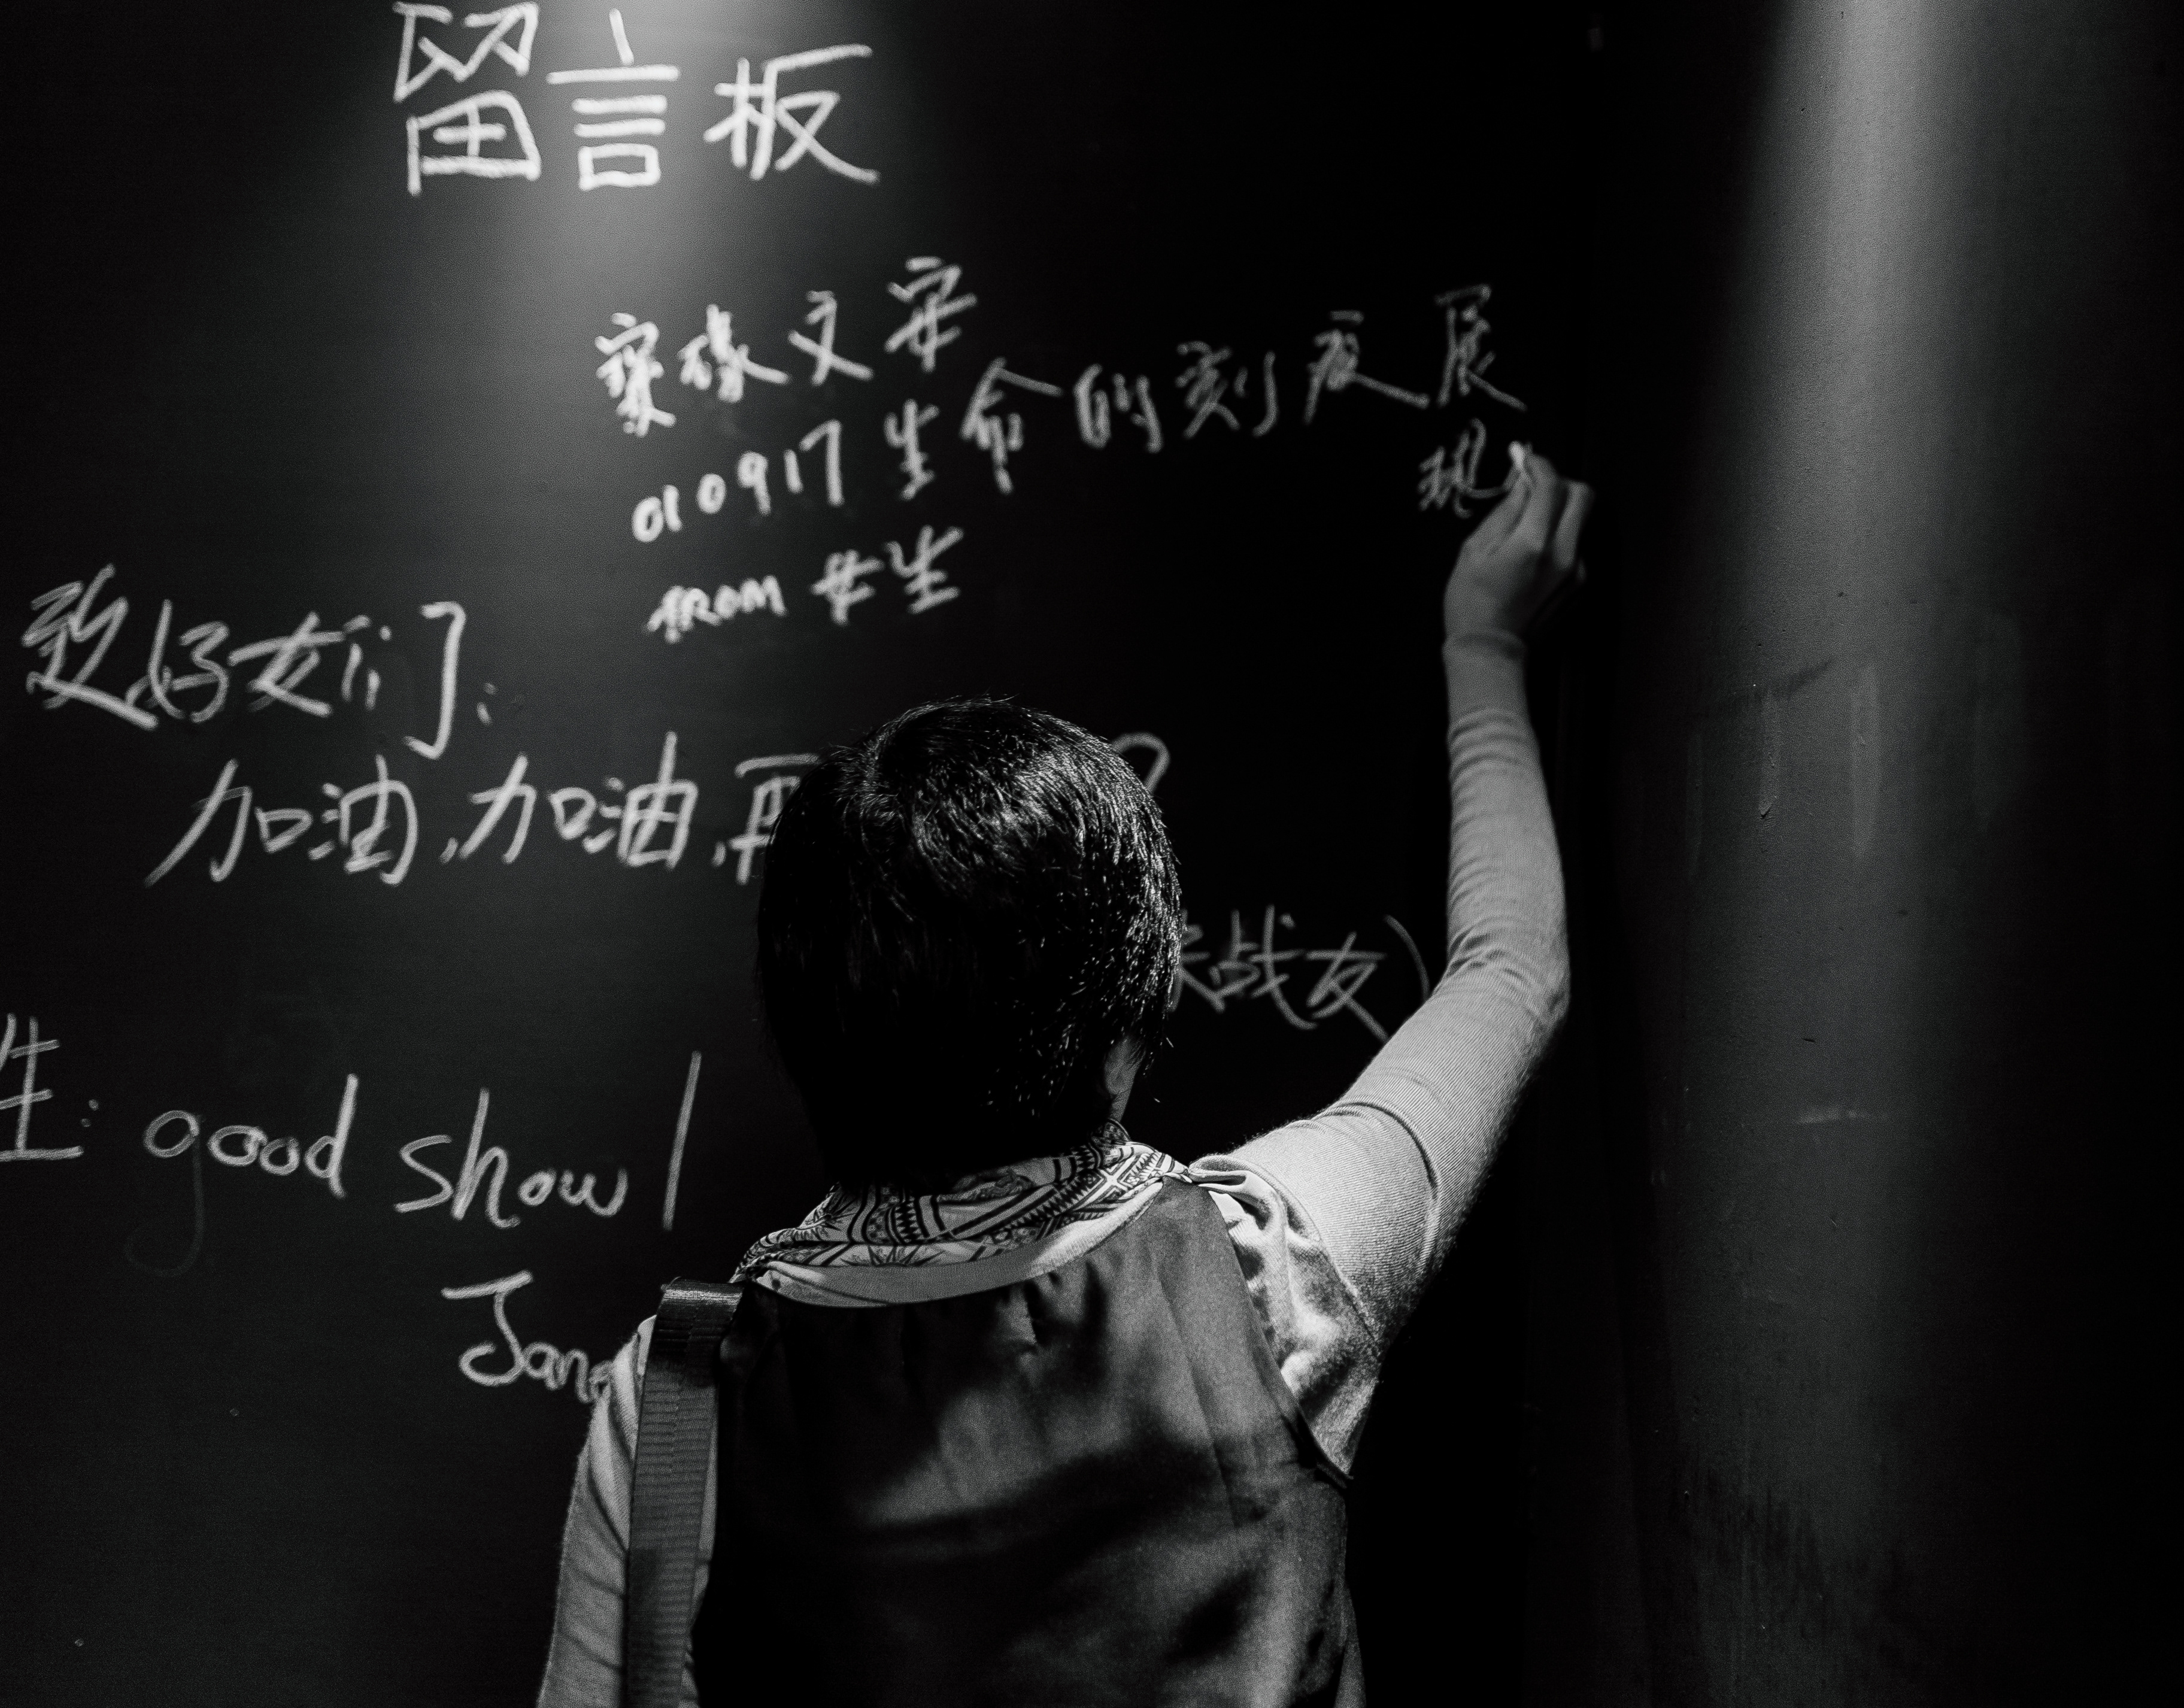 留言板
文安
010917 生命的刻度展
现
FROM 女生
致好女们:
加油,加油,再 ?
战友)
生: good show!
Jane